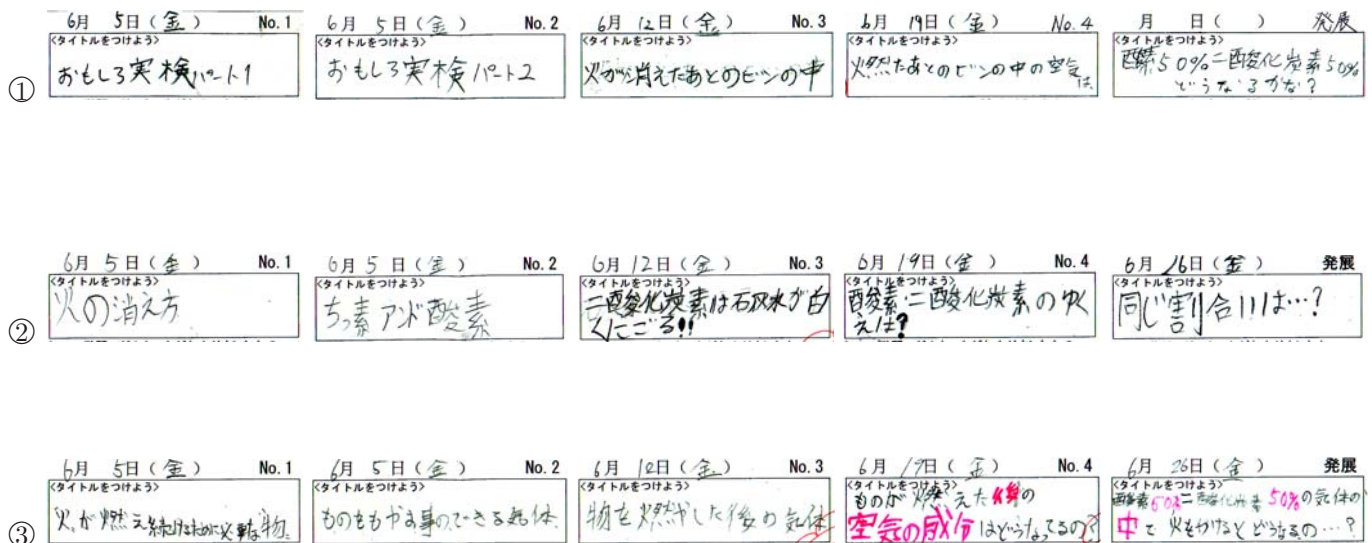 6月 5日(金) No. 1
<タイトルをつけよう>
おもしろ実検パート1
6月 5日(金) No. 2
<タイトルをつけよう>
おもしろ実検パート2
6月 12日(金) No. 3
<タイトルをつけよう>
火が消えたあとのビンの中
6月 19日(金) No. 4
<タイトルをつけよう>
火燃たあとのビンの中の空気
は、
月 日( ) 発展
<タイトルをつけよう>
酸素50%二酸化炭素50%
どうなるかな?
①
6月 5日(金) No. 1
<タイトルをつけよう>
火の消え方
6月 5日(金) No. 2
<タイトルをつけよう>
ちっ素アンド酸素
6月 12日(金) No. 3
<タイトルをつけよう>
二酸化炭素は石灰水が白
くにごる!!
6月 19日(金) No. 4
<タイトルをつけよう>
酸素・二酸化炭素のゆく
えは?
6月 26日(金) 発展
<タイトルをつけよう>
同じ割合!!は…?
②
6月 5日(金) No. 1
<タイトルをつけよう>
火が燃え続けるために必要な物。
6月 5日(金) No. 2
<タイトルをつけよう>
ものをもやす事のできる気体
6月 12日(金) No. 3
<タイトルをつけよう>
物を燃やした後の気体
6月 19日(金) No. 4
<タイトルをつけよう>
ものが燃えた後の
空気の成分はどうなってるの?
6月 26日(金) 発展
<タイトルをつけよう>
酸素50%二酸化炭素50%の気体の
中で火をつけるとどうなるの…?
③